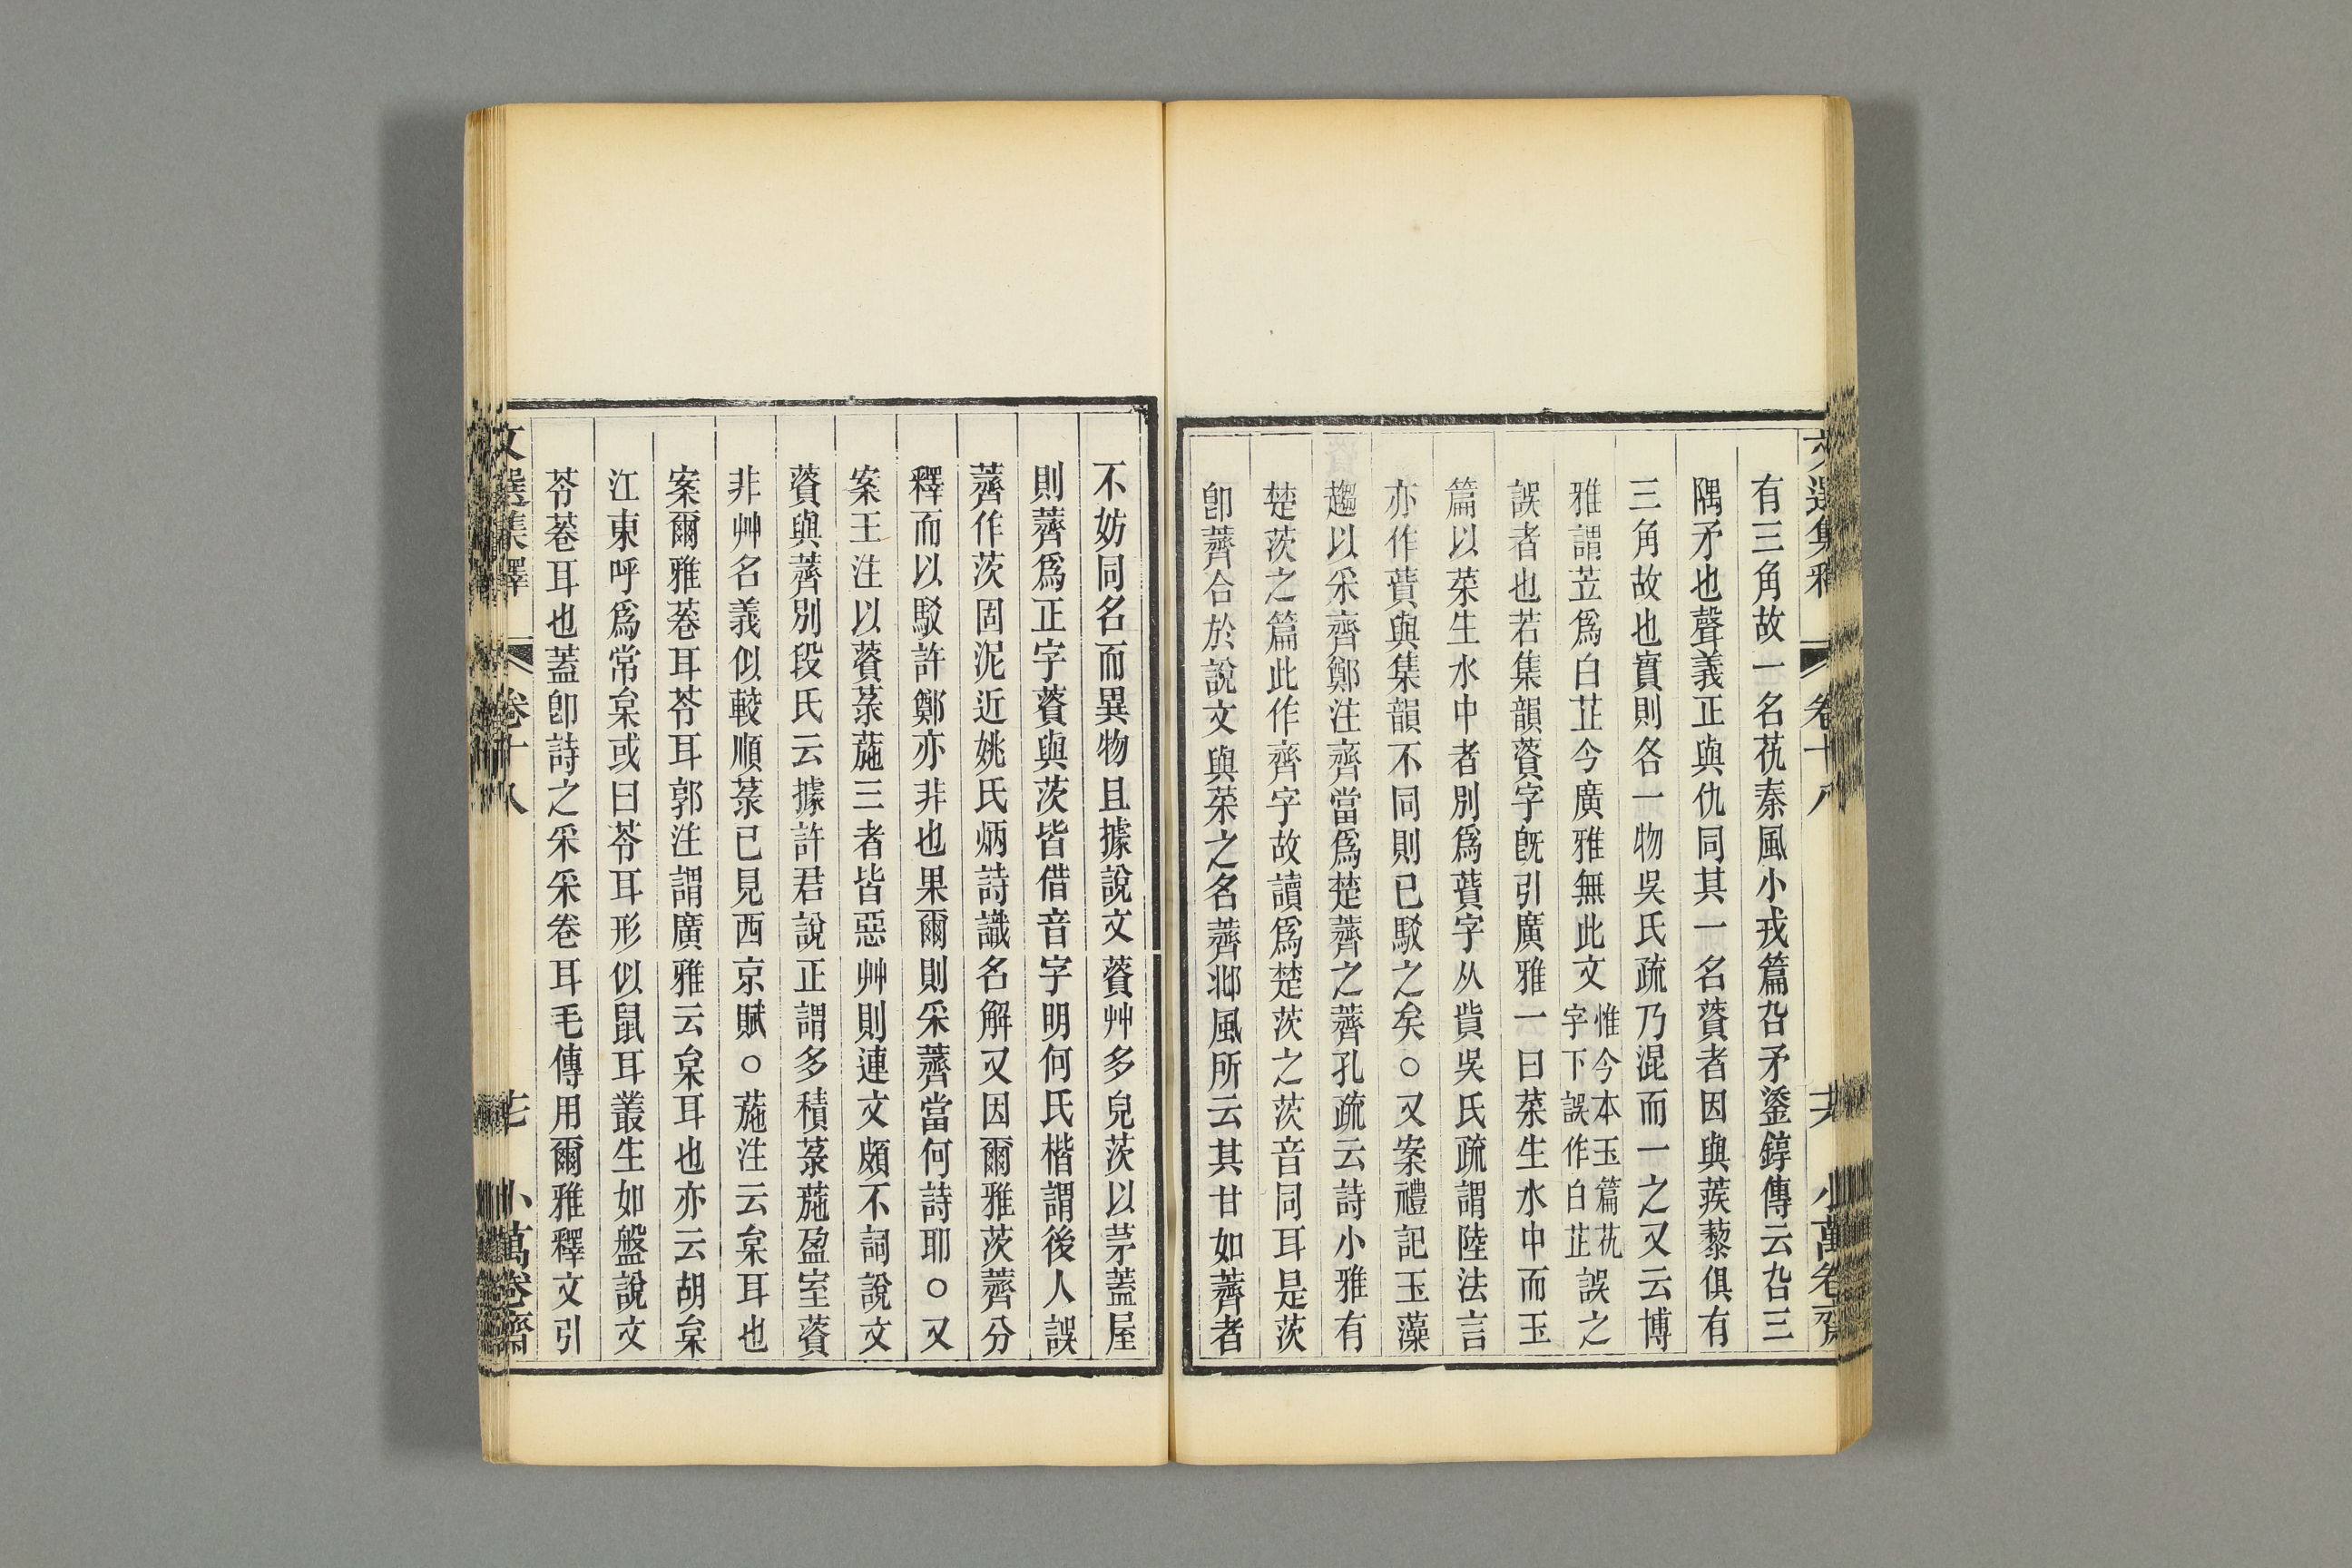 文選集釋 卷十八 共 小萬卷齋
有三角故一名茋秦風小戎篇厹矛鋈錞傳云厹三
隅矛也聲義正與仇同其一名薋者因與蒺藜俱有
三角故也實則各一物吳氏疏乃混而一之又云博
雅謂苙爲白芷今廣雅無此文惟今本玉篇茋字下誤作白芷誤之
誤者也若集韻薋字旣引廣雅一曰菜生水中而玉
篇以菜生水中者別爲薋字从貲吳氏疏謂陸法言
亦作薋與集韻不同則已駁之矣○又案禮記玉藻
趨以采齊鄭注齊當爲楚薺之薺孔疏云詩小雅有
楚茨之篇此作齊字故讀爲楚茨之茨音同耳是茨
卽薺合於說文與菜之名薺邶風所云其甘如薺者
不妨同名而異物且據說文薋艸多皃茨以茅蓋屋
則薺爲正字薋與茨皆借音字明何氏楷謂後人誤
薺作茨固泥近姚氏炳詩識名解又因爾雅茨薺分
釋而以駁許鄭亦非也果爾則采薺當何詩耶○又
案王注以薋菉葹三者皆惡艸則連文頗不詞說文
薋與薺別段氏云據許君說正謂多積菉葹盈室薋
非艸名義似較順菉已見西京賦○葹注云枲耳也
案爾雅菤耳苓耳郭注謂廣雅云枲耳也亦云胡枲
江東呼爲常枲或曰苓耳形似鼠耳叢生如盤說文
苓菤耳也蓋卽詩之采采卷耳毛傳用爾雅釋文引
文選集釋 卷十八 小萬卷齋